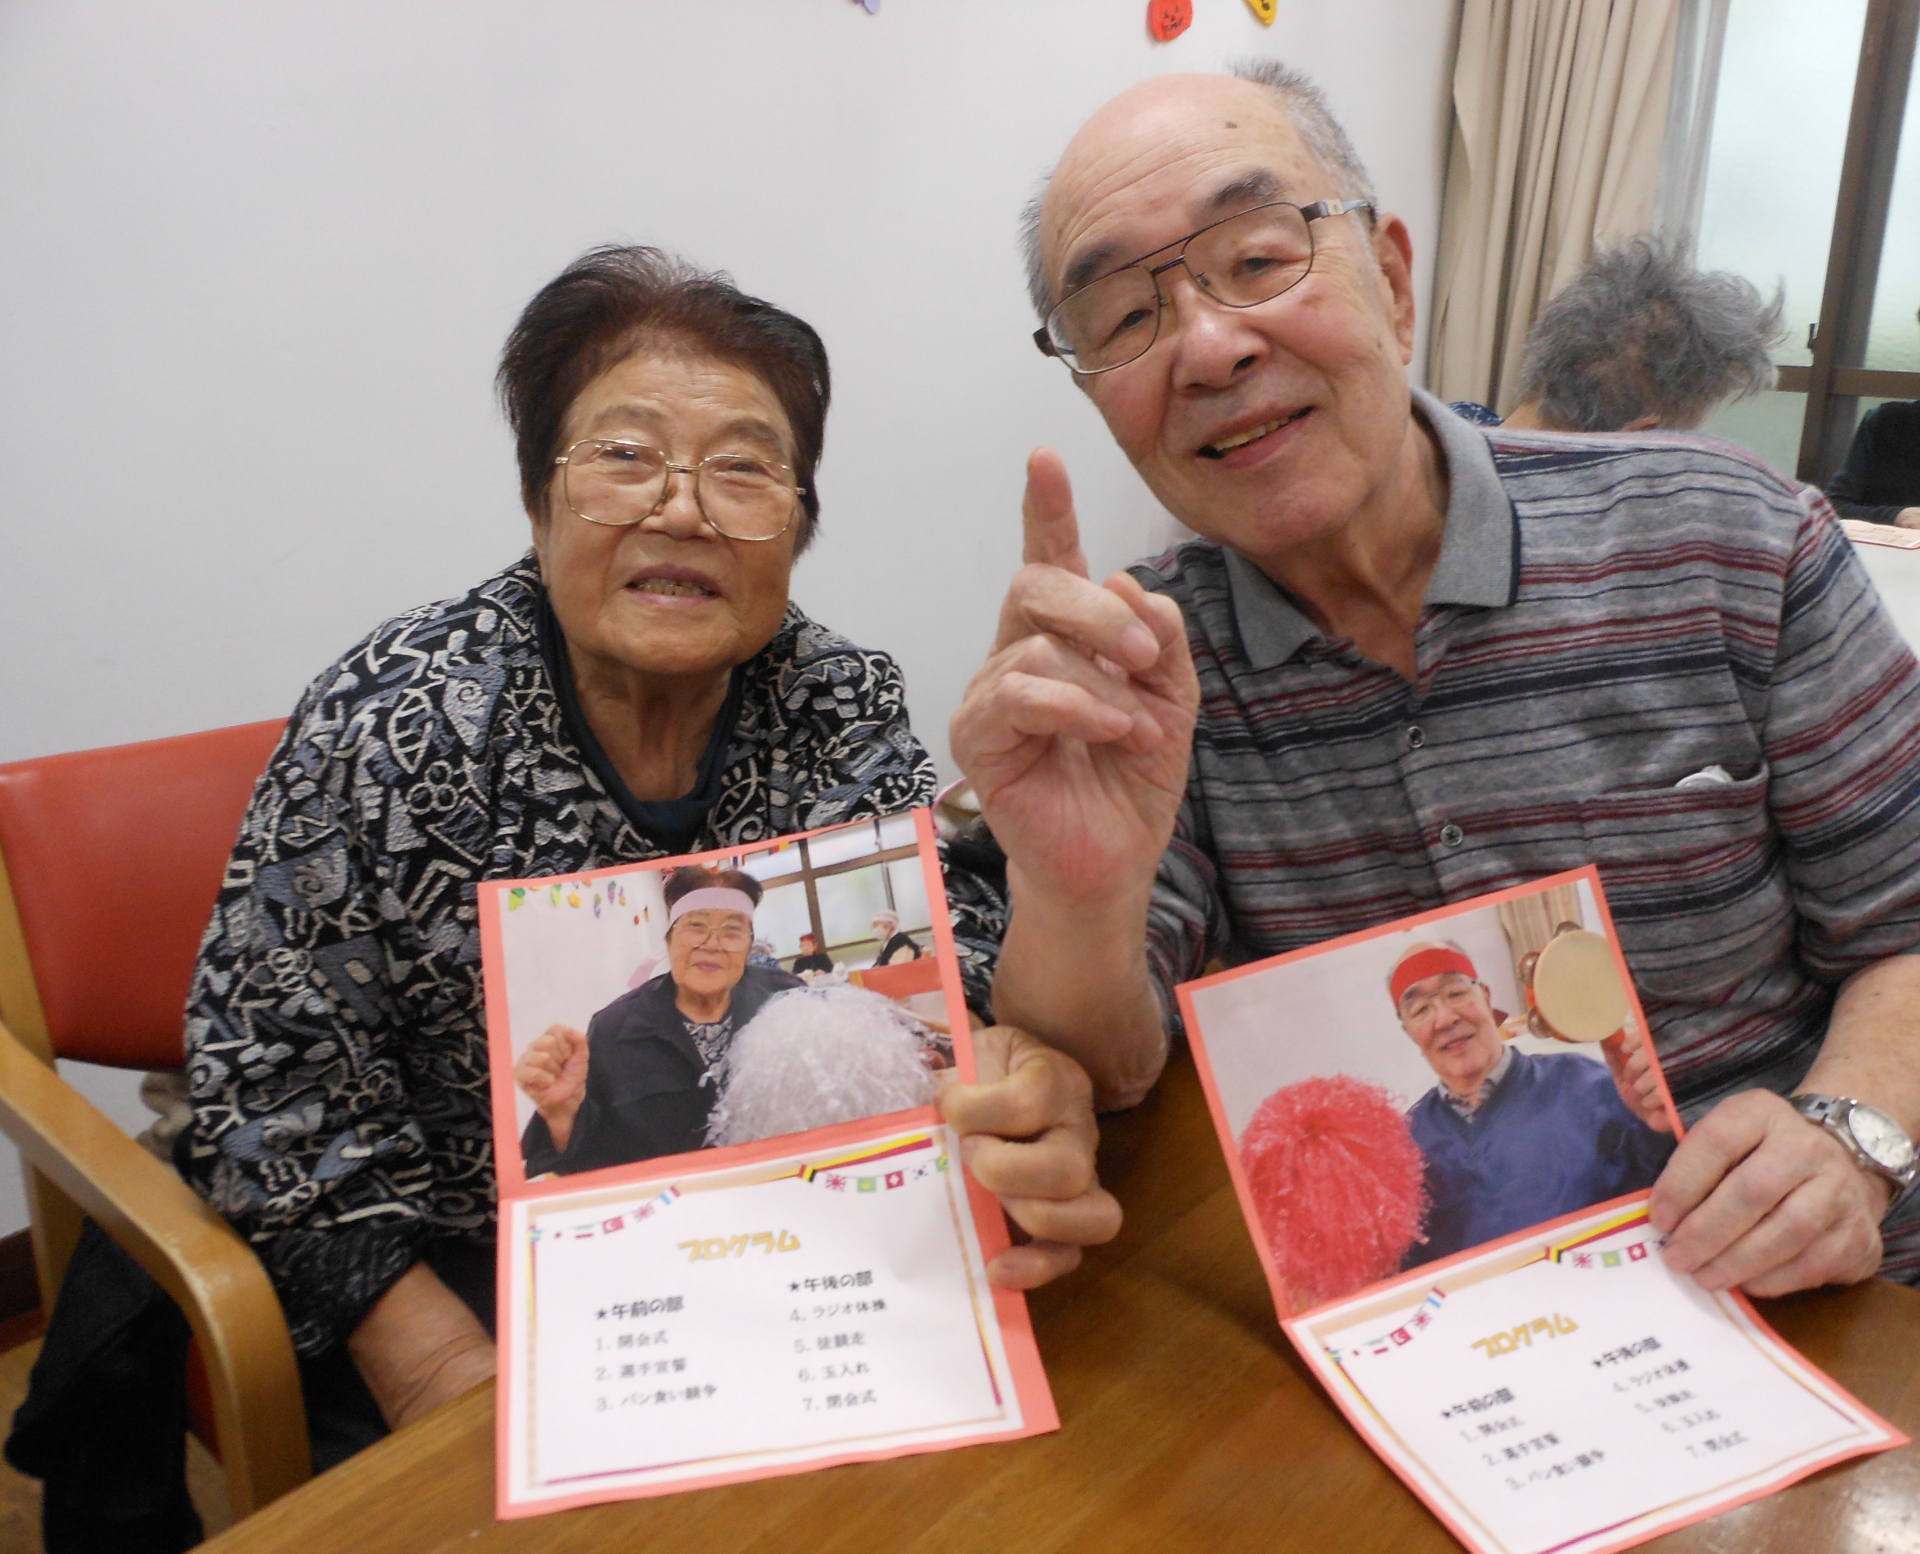 プログラム
★午前の部
1. 開会式
2. 選手宣誓
3. パン食い競争
★午後の部
4. ラジオ体操
5. 徒競走
6. 玉入れ
7. 閉会式
プログラム
★午前の部
1. 開会式
2. 選手宣誓
3. パン食い競争
★午後の部
4. ラジオ体操
5. 徒競走
6. 玉入れ
7. 閉会式